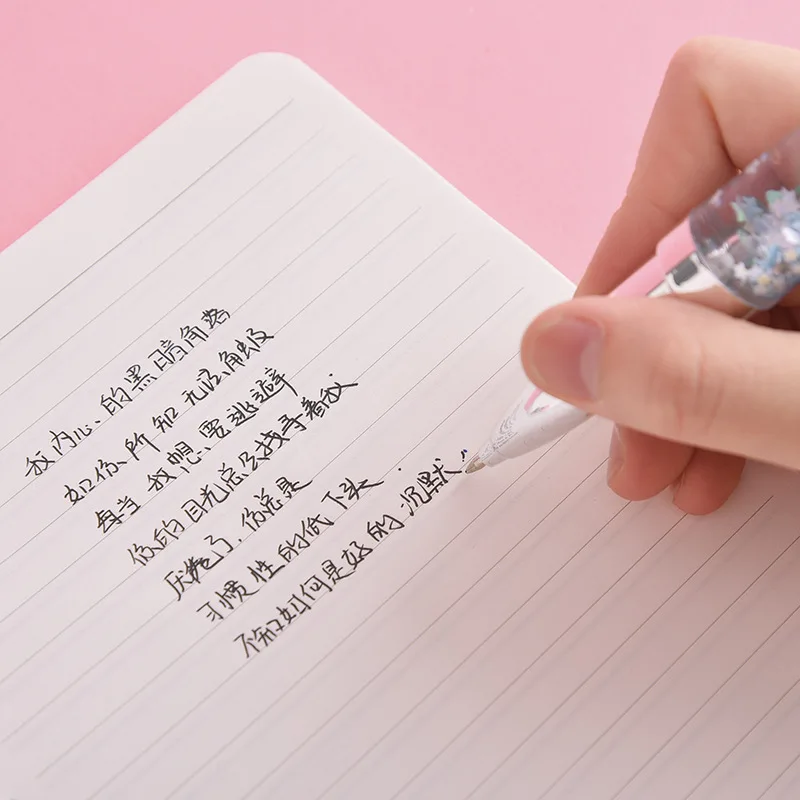 我内心的黑暗角落
如你所知无法触及
每当我想要逃避
你的目光总会找寻着我
厌倦了,你总是
习惯性的低下头.
不知如何是好的沉默.